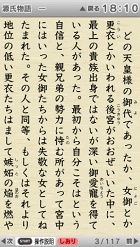 源氏物語 一
戻る 18:10
どの天皇様の御代であったか、女御とか
更衣とかいわれる後宮がおおぜいいた中に、
最上の貴族出身ではないが深い御寵愛を得て
いる人があった。最初から自分こそはという
自信と、親兄弟の勢力に恃む所があって宮中
にはいった女御たちからは失敬な女としてね
たまれた。その人と同等、もしくはそれより
地位の低い更衣たちはまして嫉妬の焔を燃や
次
操作説明
しおり
3/117
前